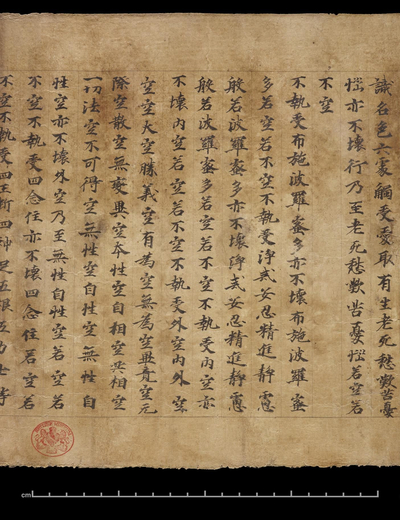 識名色六處觸受愛取有生老死愁歎苦憂
惱亦不壞行乃至老死愁歎苦憂惱若空若
不空
不執受布施波羅蜜多亦不壞布施波羅蜜
多若空若不空不執受淨戒安忍精進靜慮
般若波羅蜜多亦不壞淨戒安忍精進靜慮
般若波羅蜜多若空若不空不執受內空亦
不壞內空若空若不空不執受外空內外空
空空大空勝義空有為空無為空畢竟空无
際空散空無變異空本性空自相空共相空
一切法空不可得空無性空自性空無性自
性空亦不壞外空乃至無性自性空若空若
不空不執受四念住亦不壞四念住若空若
不空不執受四正斷四神足五根五力七等
cm